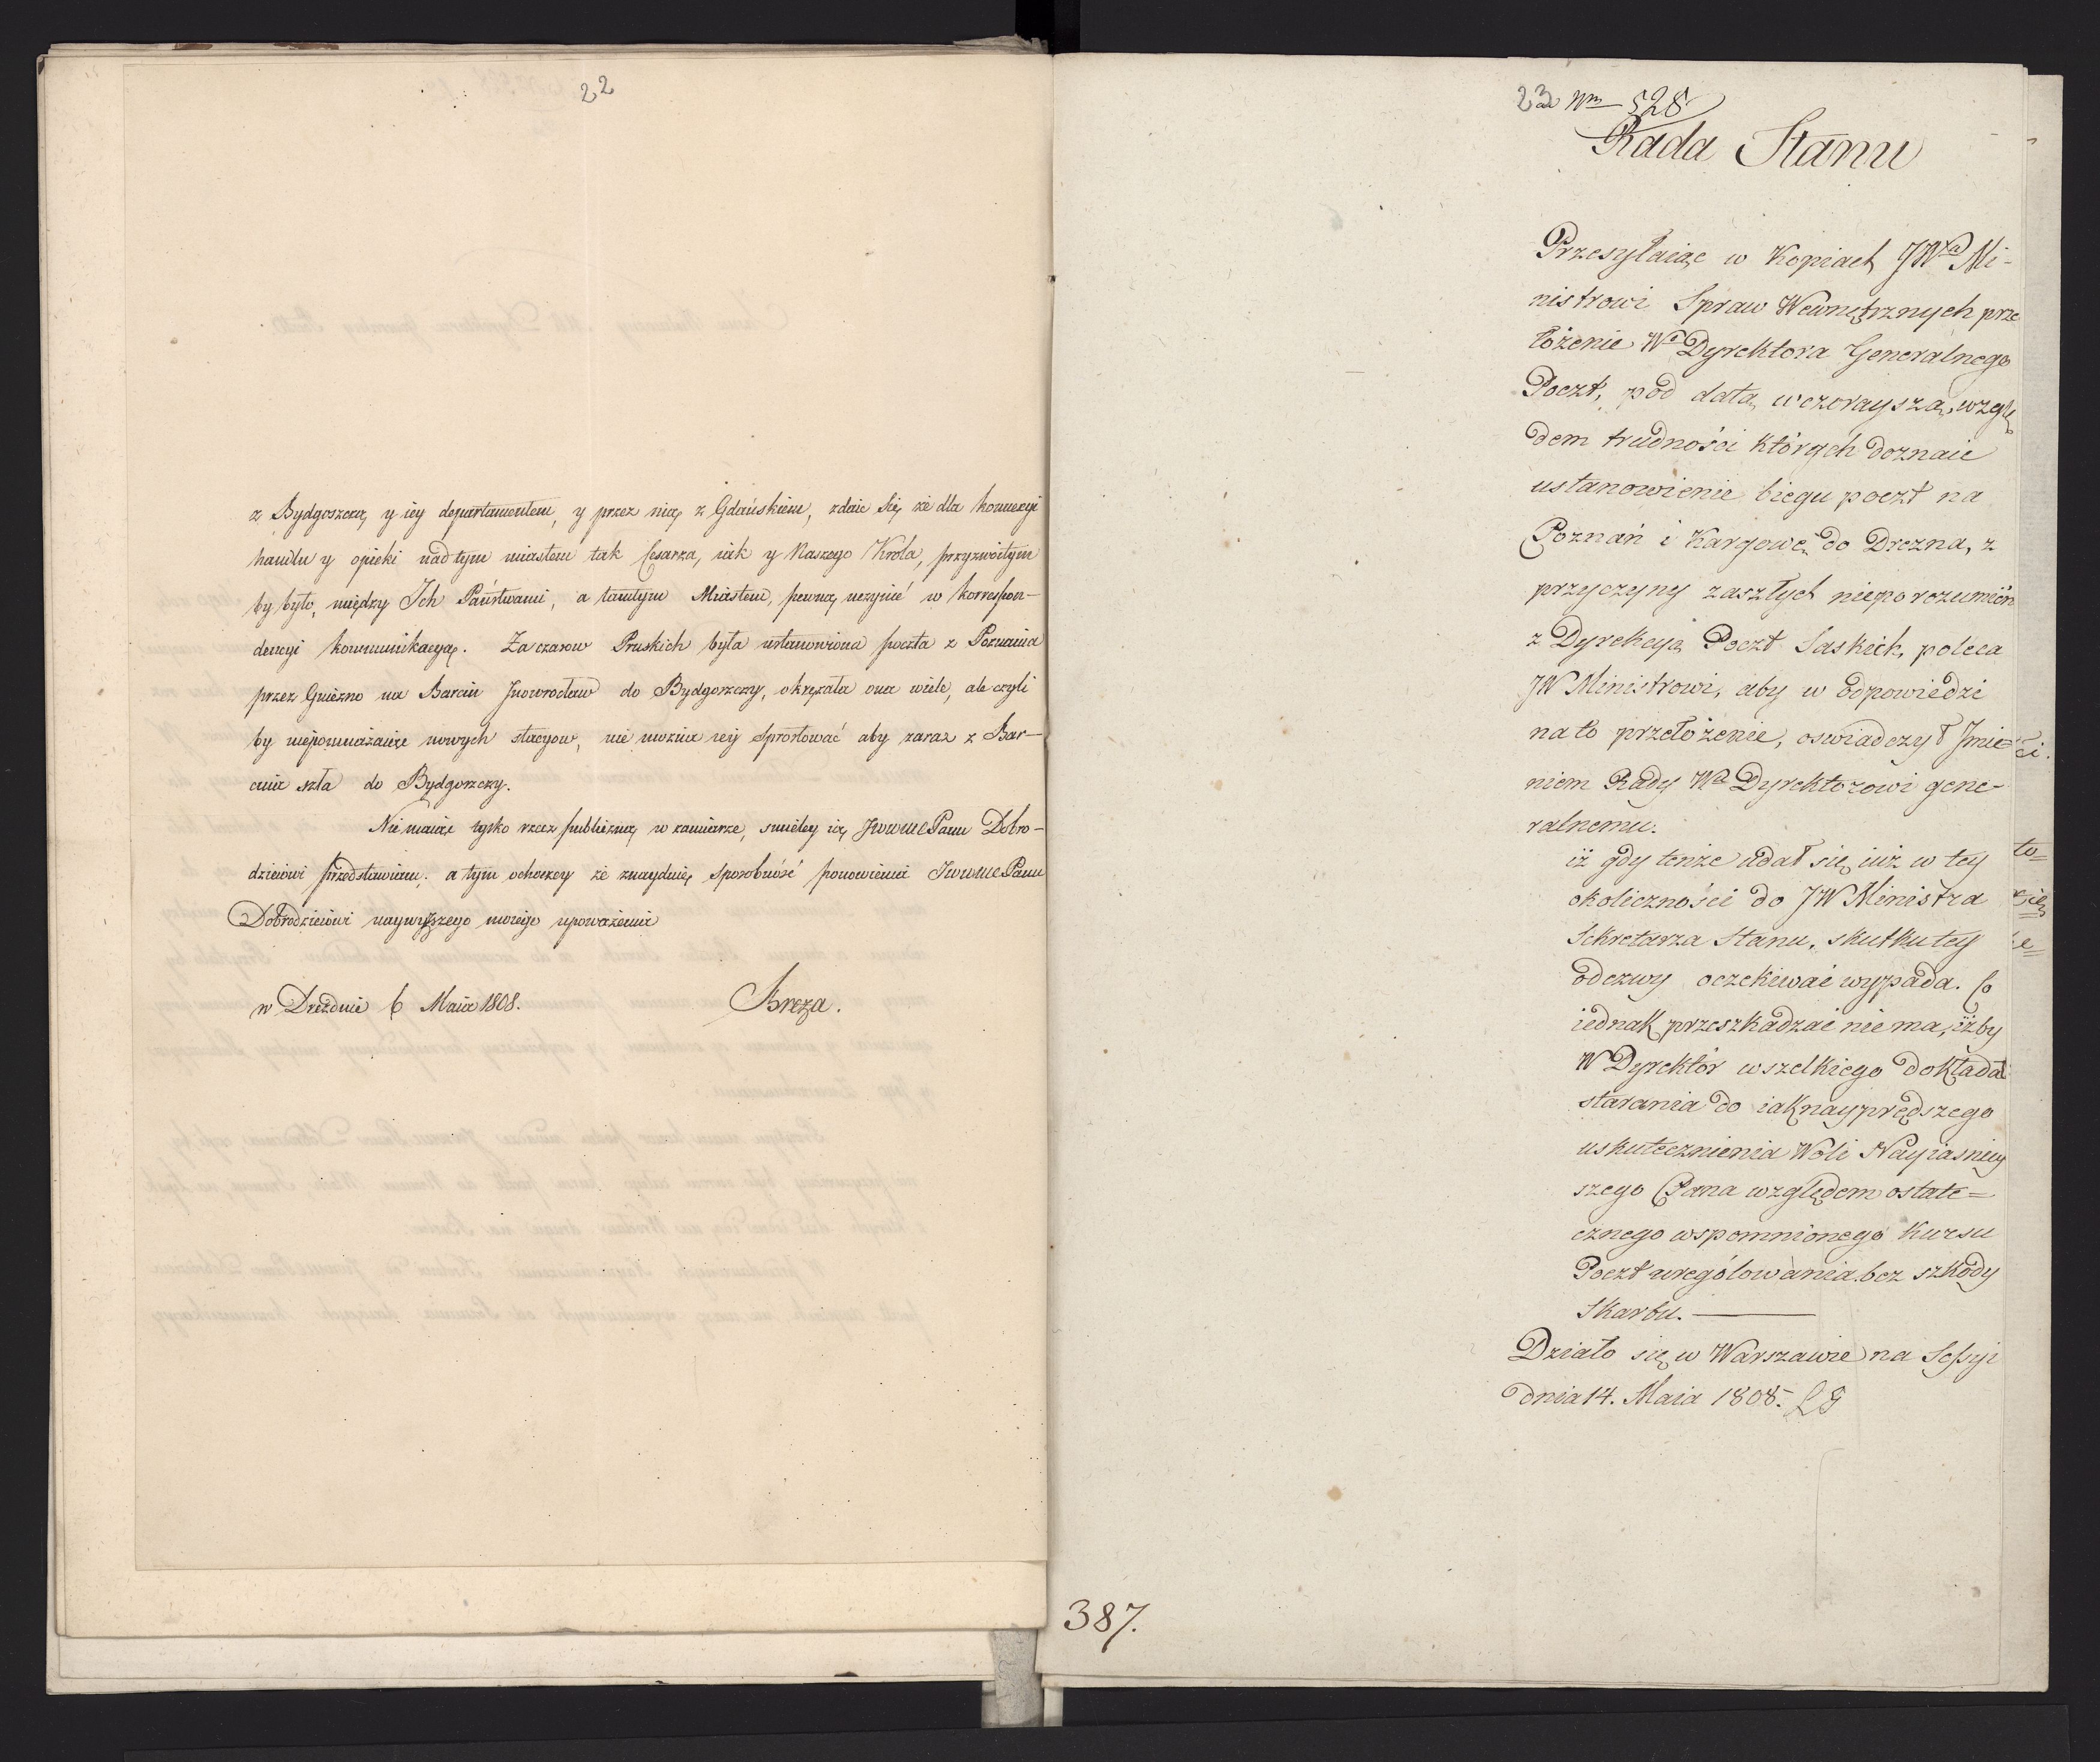 22
z Bydgoszczą y iey departamentem, y przez nią z Gdańskiem, zdaie się że dla konnexyi
handlu y opieki nad tym miastem tak Cesarza, iak y Naszego Krola, przyzwoitym
by było, między Ich Państwami, a tamtym Miastem, pewną uczynić w korrespon-
dencyi kommunikacyą. Za czasow Pruskich była ustanowiona poczta z Poznania
przez Gniezno na Barcin Jnowrocław do Bydgoszczy, okrążała ona wiele, ale czyli
by niepomnażaiąc nowych stacyow, nie można iey sprostować aby zaraz z Bar-
cina szła do Bydgoszczy.
Nie maiąc tylko rzecz publiczną w zamiarze, śmieley ią JWWMCPanu Dobro-
dzieiowi przedstawiam; a tym ochoczey że znayduię sposobność ponowienia JWWMCPanu
Dobrodzieiowi naywyższego moiego upoważenia
w Dreźdnie 6 Maia 1808.
Breza.
23 ad Nm 528
Rada Stanu
Przesyłaiąc w Kopiach JWu Mi-
nistrowi Spraw Wewnętrznych prze
łożenie Wo Dyrektora Generalnego
Poczt, pod datą wczorayszą, wzglę
dem trudności których doznaie
ustanowienie biegu poczt na
Poznań i Kargowę do Drezna, z
przyczyny zaszłych nieporozumień
z Dyrekcyą Poczt Saskich, poleca
JW Ministrowi, aby w odpowiedzi
na to przełożenie, oswiadczył Jmie-
niem Rady Wu Dyrektorowi gene-
ralnemu.
iż gdy tenże udał się iuż w tey
okoliczności do JW Ministra
Sekretarza Stanu, skutku tey
odezwy oczekiwać wypada. Co
iednak przeszkadzać nie ma, iżby
W Dyrektor wszelkiego dokładał
starania do iak nayprędszego
uskutecznienia Woli Nayiasniey
szego Pana względem ostate=
cznego wspomnionego Kursu
Poczt urególowania bez szkody
Skarbu.
Działo się w Warszawie na Sessyi
dnia 14. Maia 1808. LG
387.